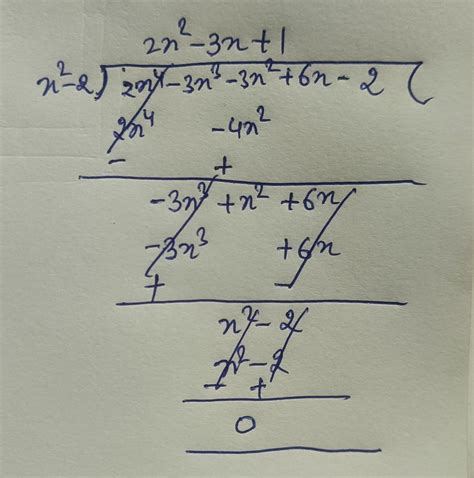 2x² -3x +1
x²-2) 2x⁴ -3x³ -3x² +6x - 2 (
2x⁴ -4x²
- +
-3x³ +x² +6x
-3x³ +6x
+ -
x² - 2
x² - 2
- +
0